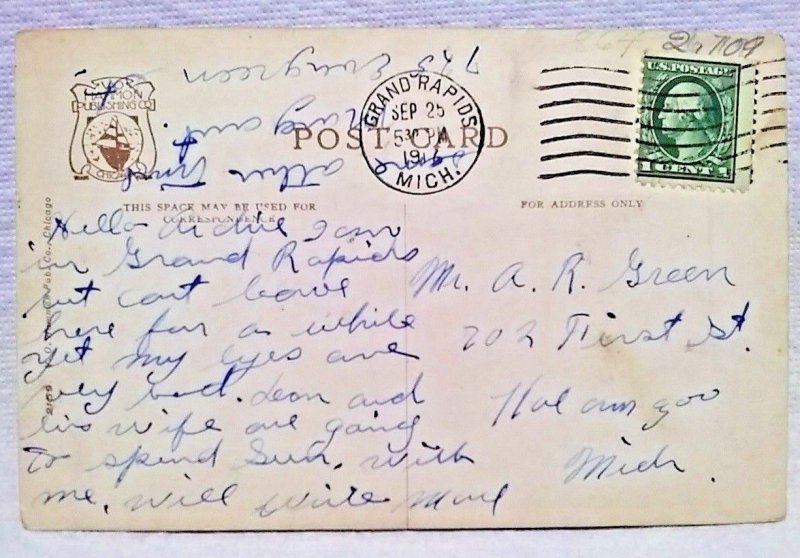 POST CARD
V.O. HAMMON
PUBLISHING CO
CHICAGO
GRAND RAPIDS
SEP 25
530 PM
MICH.
U.S. POSTAGE
1 CENT 1
THIS SPACE MAY BE USED FOR
CORRESPONDENCE
FOR ADDRESS ONLY
Hello I am
in Grand Rapids
but cant leave
here for a while
yet my eyes are
very bad. Leon and
his wife are going
to spend Sun. with
me. will write
Mr. A. R. Green
202 First St.
Kalamazoo
Mich.
Evergreen
Pub. Co., Chicago